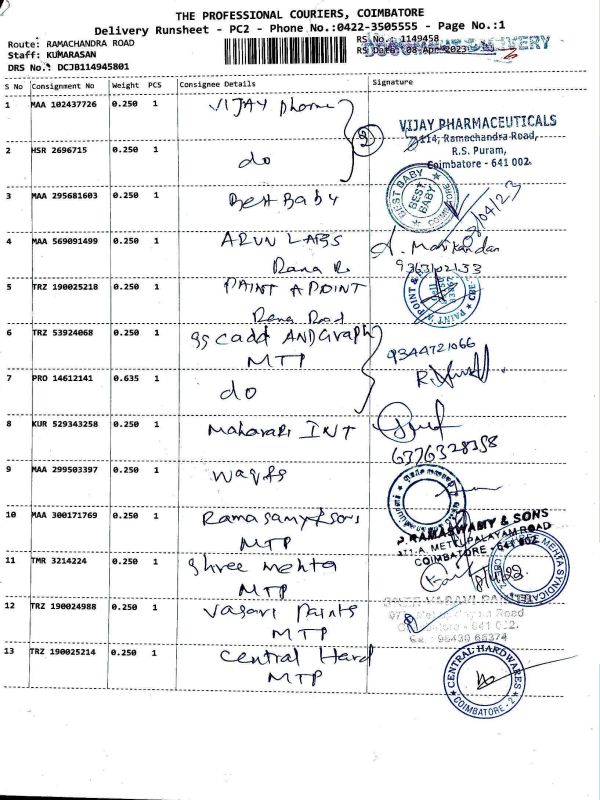 THE PROFESSIONAL COURIERS, COIMBATORE
Delivery Runsheet - PC2 - Phone No.:0422-3505555 - Page No.:1
Route: RAMACHANDRA ROAD
RS No.: 1149458
Staff: KUMARASAN
RS Date: 08-Apr-2023
DRS No.: DCJB114945801
S No Consignment No Weight PCS Consignee Details Signature
1 MAA 102437726 0.250 1 VIJAY pharma
2
VIJAY PHARMACEUTICALS
114, Ramachandra Road,
R.S. Puram,
Coimbatore - 641 002.
2 HSR 2696715 0.250 1 do
3 MAA 295681603 0.250 1 Best Baby
BEST BABY
BEST BABY
8/04/23
4 MAA 569091499 0.250 1 ARUN LABS
A. Manikandan
9363102133
5 TRZ 190025218 0.250 1 PAINT A POINT
6 TRZ 53924068 0.250 1 gs cadd AND Graph
MTP
9344721066
7 PRO 14612141 0.635 1 do
8 KUR 529343258 0.250 1 Maharani INT
6376328358
9 MAA 299503397 0.250 1
10 MAA 300171769 0.250 1 Ramasamy & sons
MTP
P. RAMASWAMY & SONS
METTUPALAYAM ROAD
COIMBATORE - 641 002
11 TMR 3214224 0.250 1 Shree Mehta
MTP
MEHTA SYNDICATE
12 TRZ 190024988 0.250 1 Vasavi Paints
MTP
13 TRZ 190025214 0.250 1 Central Hard
MTP
CENTRAL HARDWARES
COIMBATORE - 2